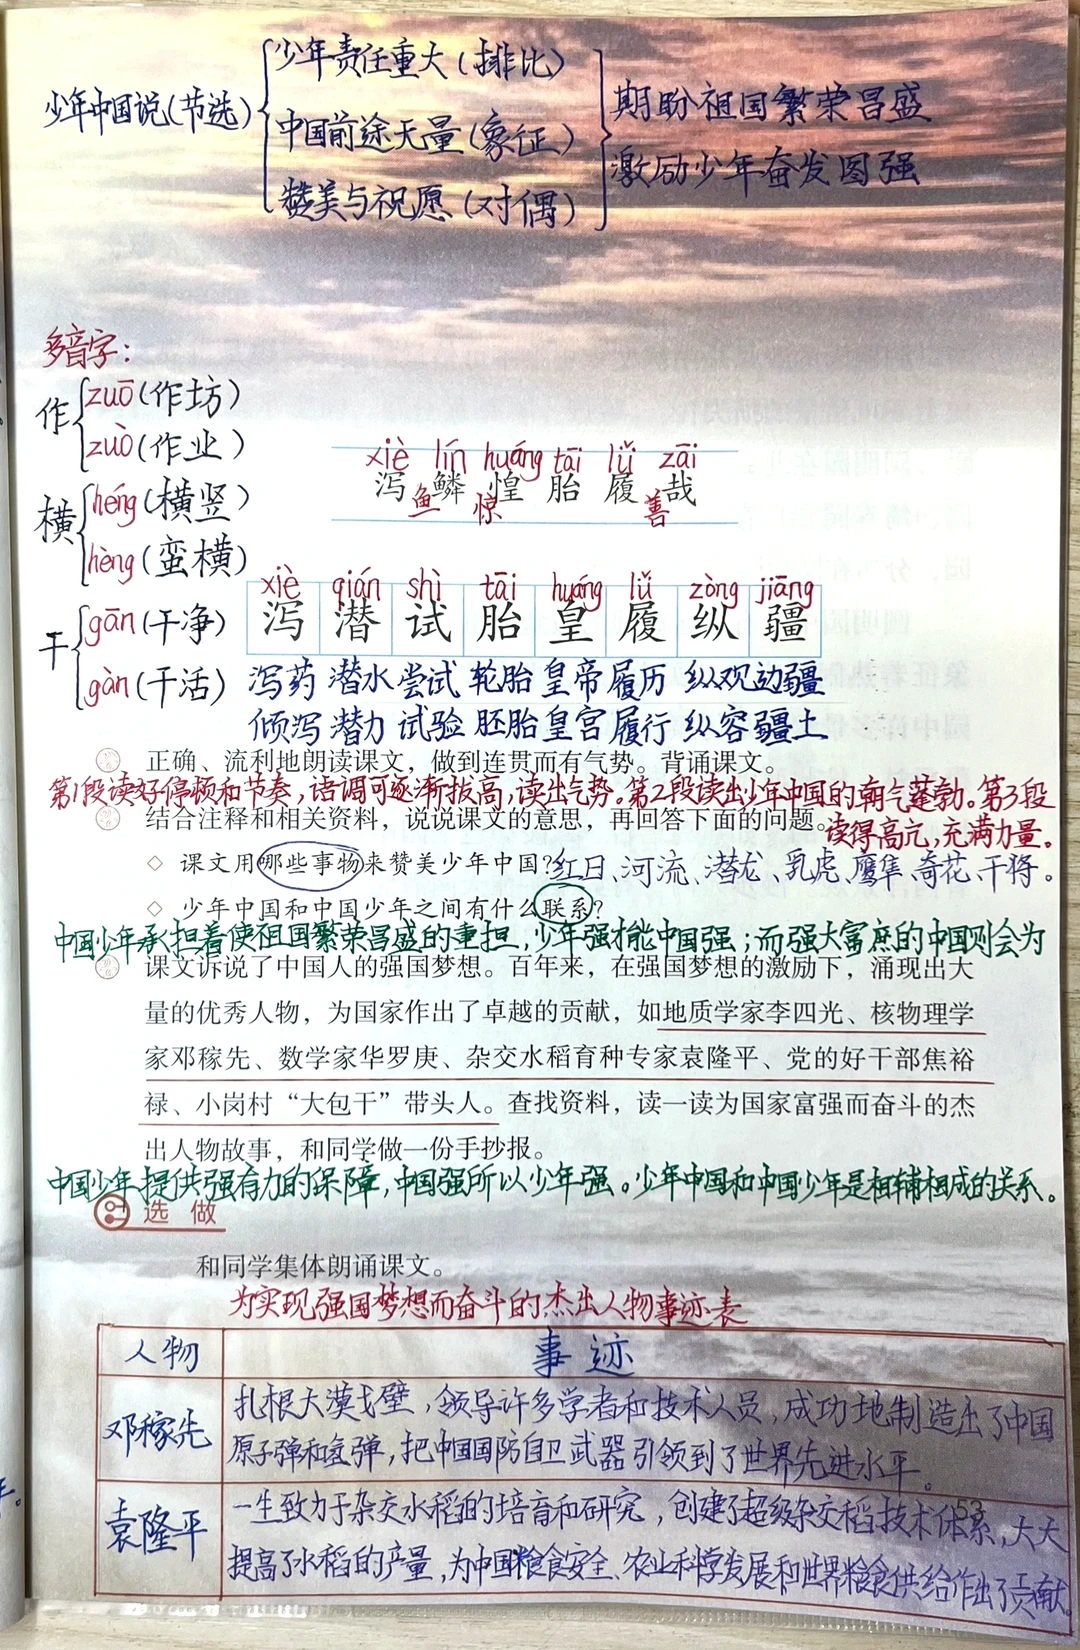 少年中国说(节选)
少年责任重大(排比)
中国前途无量(象征)
赞美与祝愿(对偶)
期盼祖国繁荣昌盛
激励少年奋发图强
多音字:
作
zuō(作坊)
zuò(作业)
横
héng(横竖)
hèng(蛮横)
干
gān(干净)
gàn(干活)
xiè lín huáng tāi lǚ zāi
泻 鳞 惶 胎 履 哉
鱼 惊 善
xiè qián shì tāi huáng lǚ zòng jiāng
泻 潜 试 胎 皇 履 纵 疆
泻药 潜水 尝试 轮胎 皇帝 履历 纵观 边疆
倾泻 潜力 试验 胚胎 皇宫 履行 纵容 疆土
正确、流利地朗读课文，做到连贯而有气势。背诵课文。
第1段读好停顿和节奏,语调可逐渐拔高,读出气势。第2段读出少年中国的朝气蓬勃。第3段
读得高亢,充满力量。
结合注释和相关资料，说说课文的意思，再回答下面的问题。
◇ 课文用哪些事物来赞美少年中国?
红日、河流、潜龙、乳虎、鹰隼、奇花、干将。
◇ 少年中国和中国少年之间有什么联系?
中国少年承担着使祖国繁荣昌盛的重担,少年强才能中国强;而强大富庶的中国则会为
课文诉说了中国人的强国梦想。百年来，在强国梦想的激励下，涌现出大
量的优秀人物，为国家作出了卓越的贡献，如地质学家李四光、核物理学
家邓稼先、数学家华罗庚、杂交水稻育种专家袁隆平、党的好干部焦裕
禄、小岗村“大包干”带头人。查找资料，读一读为国家富强而奋斗的杰
出人物故事，和同学做一份手抄报。
中国少年提供强有力的保障,中国强所以少年强。少年中国和中国少年是相辅相成的关系。
选 做
和同学集体朗诵课文。
为实现强国梦想而奋斗的杰出人物事迹表
人物 事迹
邓稼先
扎根大漠戈壁,领导许多学者和技术人员,成功地制造出了中国
原子弹和氢弹,把中国国防自卫武器引领到了世界先进水平。
袁隆平
一生致力于杂交水稻的培育和研究,创建了超级杂交稻技术体系,大大
提高了水稻的产量,为中国粮食安全、农业科学发展和世界粮食供给作出了贡献。
53